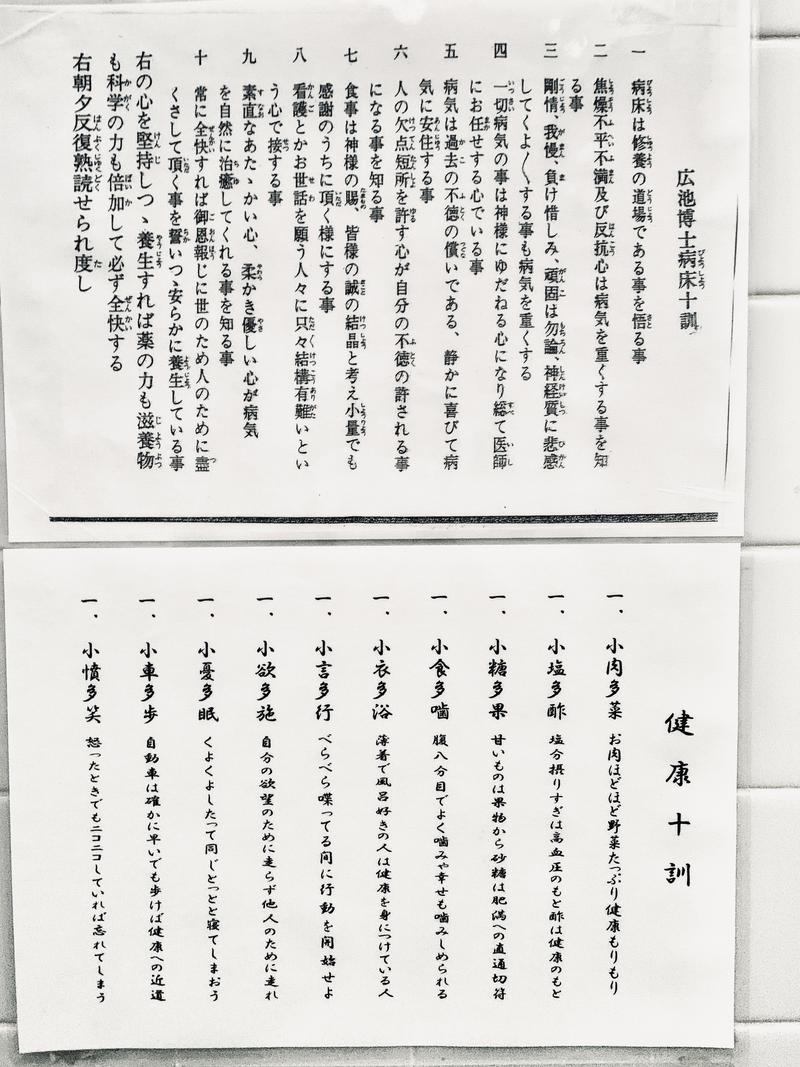 広池博士病床十訓
一　病床は修養の道場である事を悟る事
二　焦燥不平不満及び反抗心は病気を重くする事を知
る事
三　剛情、我慢、負け惜しみ、頑固は勿論、神経質に悲感
してくよ〳〵する事も病気を重くする
四　一切病気の事は神様にゆだねる心になり総て医師
にお任せする心でいる事
五　病気は過去の不徳の償いである、静かに喜びて病
気に安住する事
六　人の欠点短所を許す心が自分の不徳の許される事
になる事を知る事
七　食事は神様の賜　皆様の誠の結晶と考え小量でも
感謝のうちに頂く様にする事
八　看護とかお世話を願う人々に只々結構有難いとい
う心で接する事
九　素直なあたゝかい心、柔かき優しい心が病気
を自然に治癒してくれる事を知る事
十　常に全快すれば御恩報じに世のため人のために盡
くさして頂く事を誓いつゝ安らかに養生している事
右の心を堅持しつゝ養生すれば薬の力も滋養物
も科学の力も倍加して必ず全快する
右朝夕反復熟読せられ度し
健康十訓
一、小肉多菜　お肉ほどほど野菜たっぷり健康もりもり
一、小塩多酢　塩分摂りすぎは高血圧のもと酢は健康のもと
一、小糖多果　甘いものは果物から砂糖は肥満への直通切符
一、小食多噛　腹八分目でよく噛みや幸せも噛みしめられる
一、小衣多浴　薄着で風呂好きの人は健康を身につけている人
一、小言多行　べらべら喋ってる间に行動を開始せよ
一、小欲多施　自分の欲望のために走らず他人のために走れ
一、小憂多眠　くよくよしたって同じとっとと寝てしまおう
一、小車多歩　自動車は確かに早いでも歩けば健康への近道
一、小憤多笑　怒ったときでもニコニコしていれば忘れてしまう